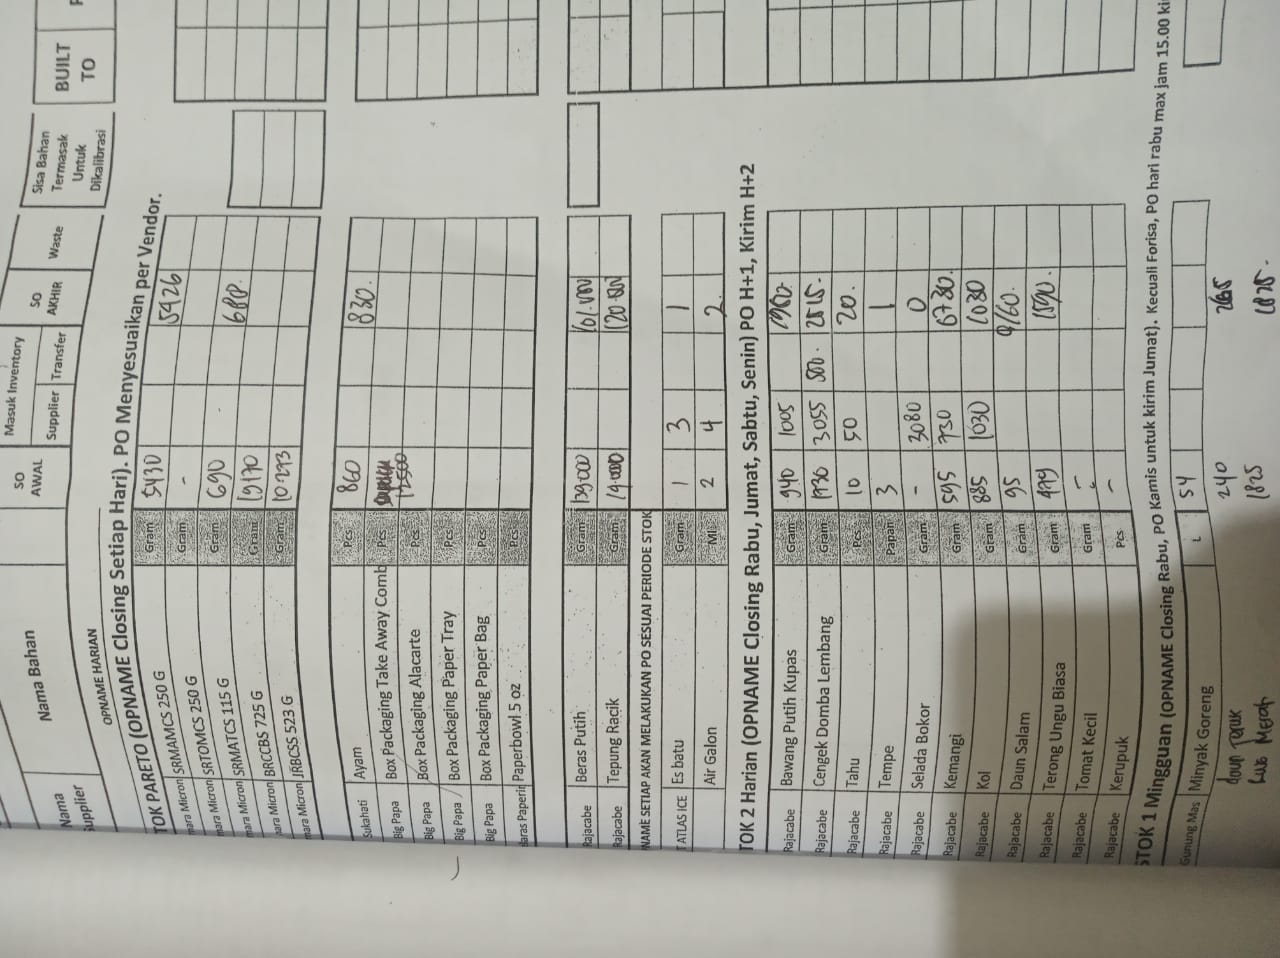 Nama Supplier Nama Bahan SO AWAL Masuk Inventory Supplier Transfer SO AKHIR Waste Sisa Bahan Termasak Untuk Dikalibrasi BUILT TO
OPNAME HARIAN
TOK PARETO (OPNAME Closing Setiap Hari). PO Menyesuaikan per Vendor.
mara Micron SRMAMCS 250 G Gram 5430 5426
mara Micron SRTOMCS 250 G Gram -
mara Micron SRMATCS 115 G Gram 690 680.
mara Micron BRCCBS 725 G Gram 19170
mara Micron JRBCSS 523 G Gram 10.293
Sukahati Ayam Pcs 860 830.
Big Papa Box Packaging Take Away Comb Pcs
Big Papa Box Packaging Alacarte Pcs
Big Papa Box Packaging Paper Tray Pcs
Big Papa Box Packaging Paper Bag Pcs
Haras Paperin Paperbowl 5 oz Pcs
Rajacabe Beras Putih Gram 139000 161.000
Rajacabe Tepung Racik Gram 19.000 120.000
NAME SETIAP AKAN MELAKUKAN PO SESUAI PERIODE STOK
T ATLAS ICE Es batu Gram 1 3 1
Air Galon Mil 2 4 2.
TOK 2 Harian (OPNAME Closing Rabu, Jumat, Sabtu, Senin) PO H+1, Kirim H+2
Rajacabe Bawang Putih Kupas Gram 940 1005
Rajacabe Cengek Domba Lembang Gram 1730 3055 500. 2515.
Rajacabe Tahu Pcs 10 50 20.
Rajacabe Tempe Papan 3 1
Rajacabe Selada Bokor Gram - 3080 0
Rajacabe Kemangi Gram 595 730 6730.
Rajacabe Kol Gram 885 1030 1030
Rajacabe Daun Salam Gram 95
Rajacabe Terong Ungu Biasa Gram 479 1590.
Rajacabe Tomat Kecil Gram -
Rajacabe Kerupuk Pcs -
STOK 1 Mingguan (OPNAME Closing Rabu, PO Kamis untuk kirim Jumat). Kecuali Forisa, PO hari rabu max jam 15.00 ki
Gunung Mas Minyak Goreng L 54
daun Jeruk 240 265
Laos Merah 1825 1825.